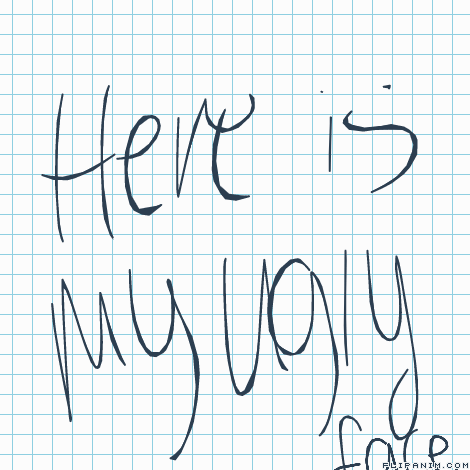 Here is
my Ugly
face
FLIPANIM.COM